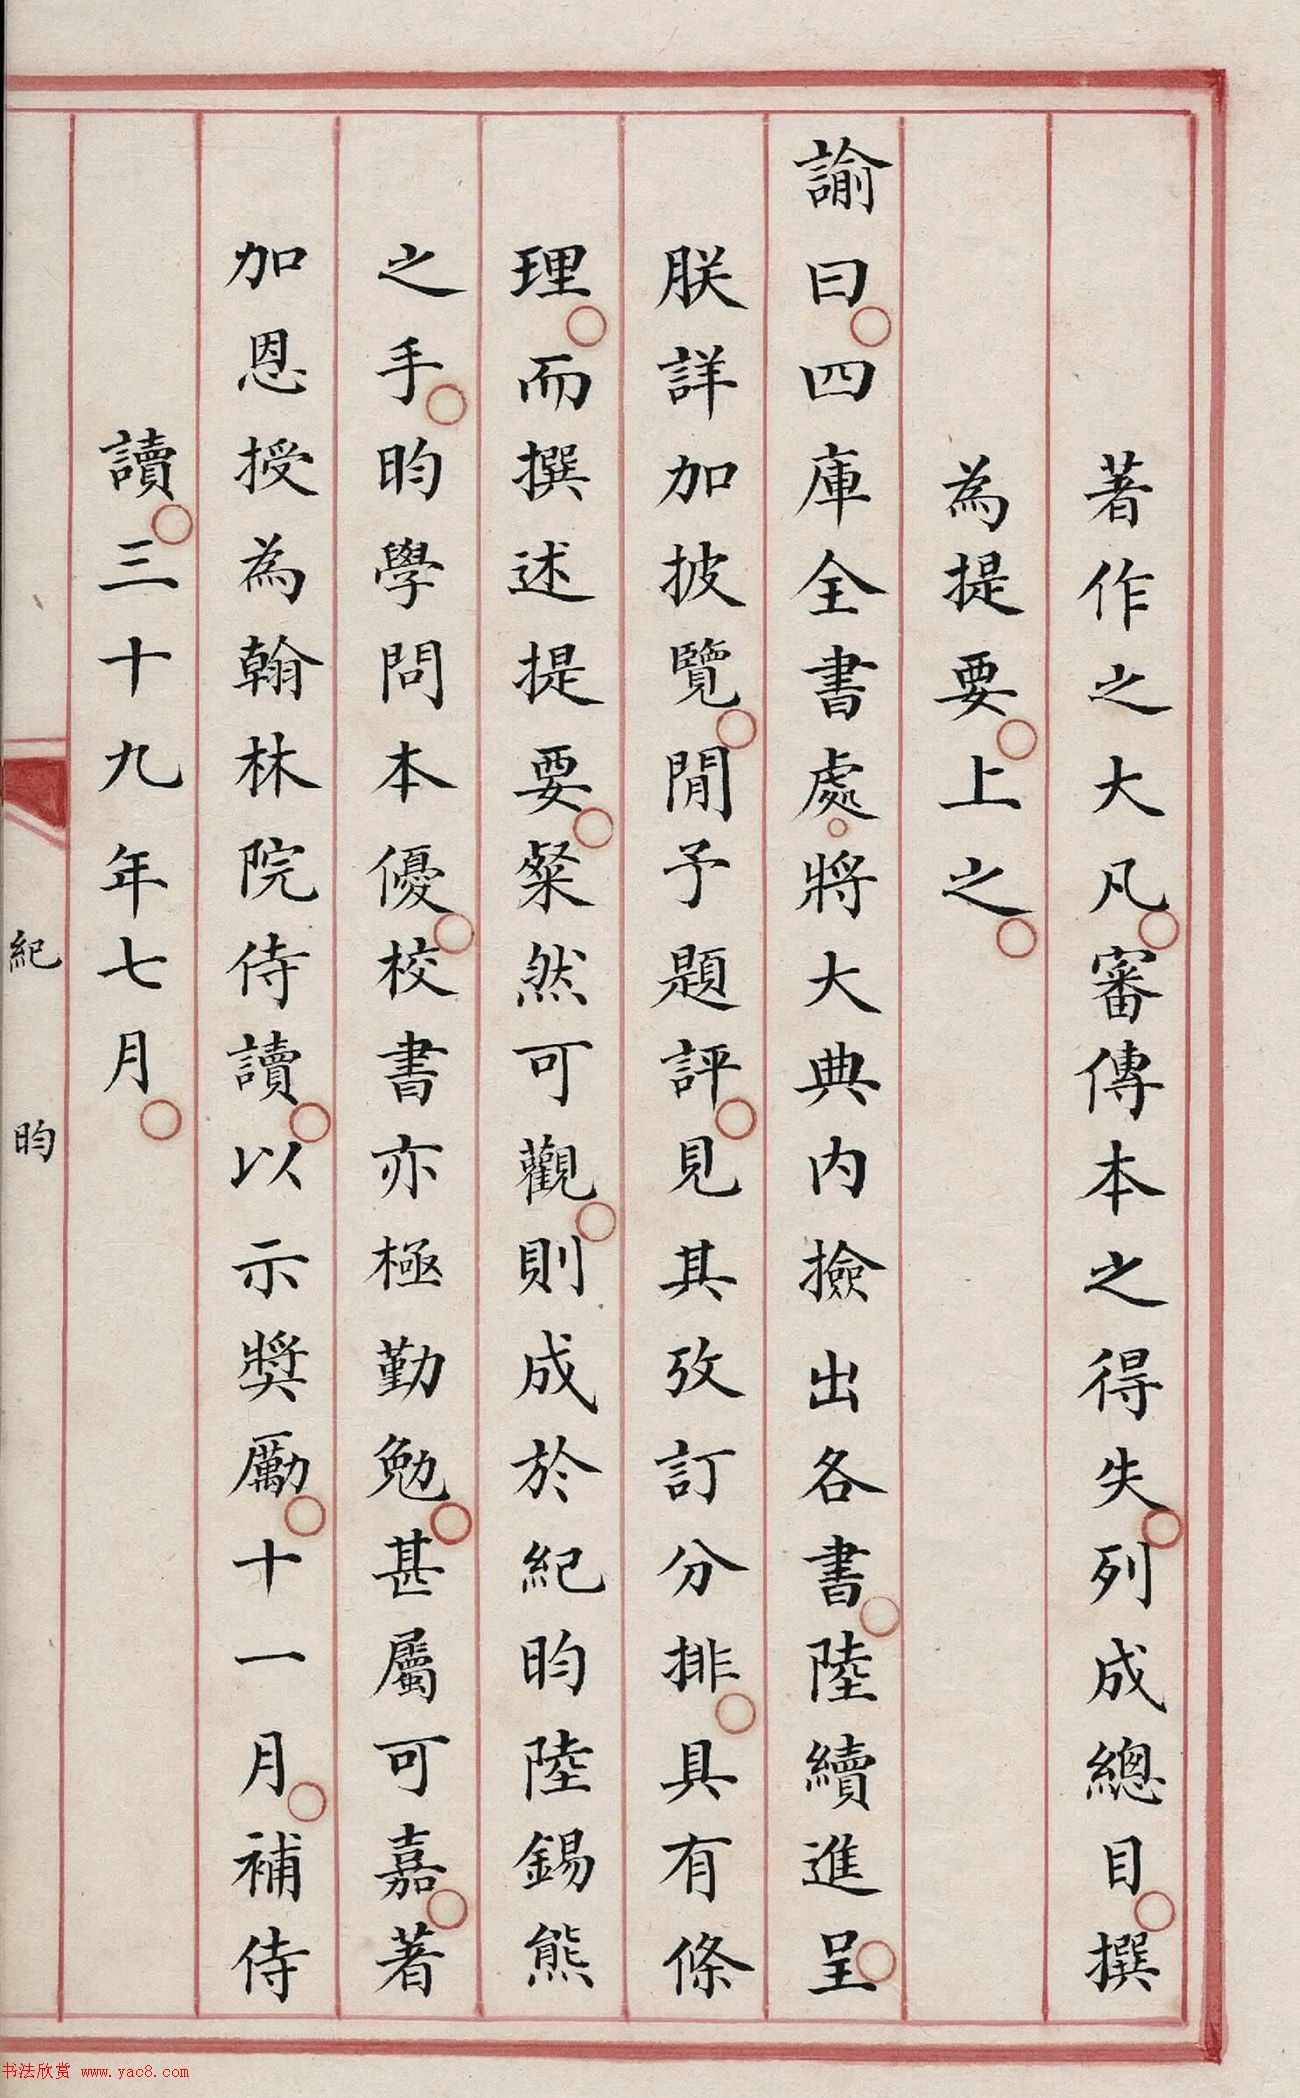 著作之大凡審傳本之得失列成總目撰
為提要上之
諭曰四庫全書處將大典內撿出各書陸續進呈
朕詳加披覽間予題評見其攷訂分排具有條
理而撰述提要粲然可觀則成於紀昀陸錫熊
之手昀學問本優校書亦極勤勉甚屬可嘉著
加恩授為翰林院侍讀以示獎勵十一月補侍
讀三十九年七月
紀昀
书法欣赏 www.yac8.com